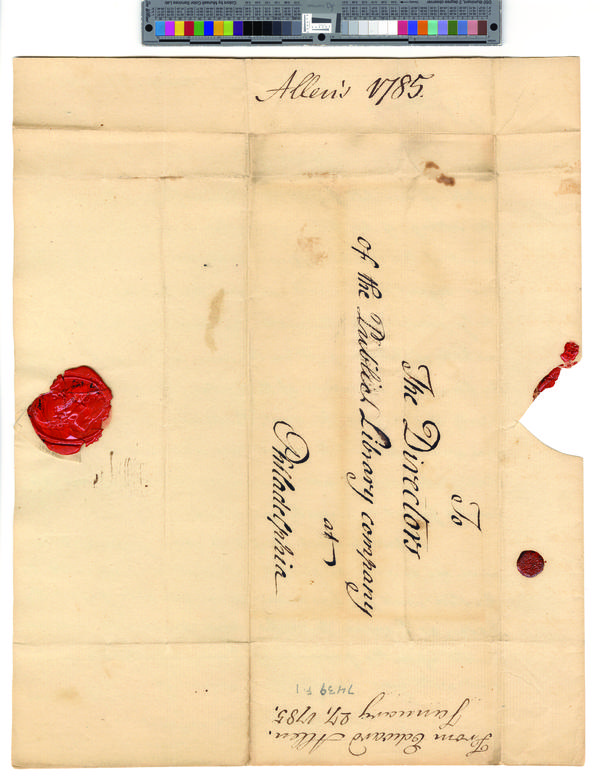 Allen's 1785.
To
The Directors
of the Publick Library company
at
Philadelphia
From Edward Allen.
January 27, 1785.
7439 F. 1